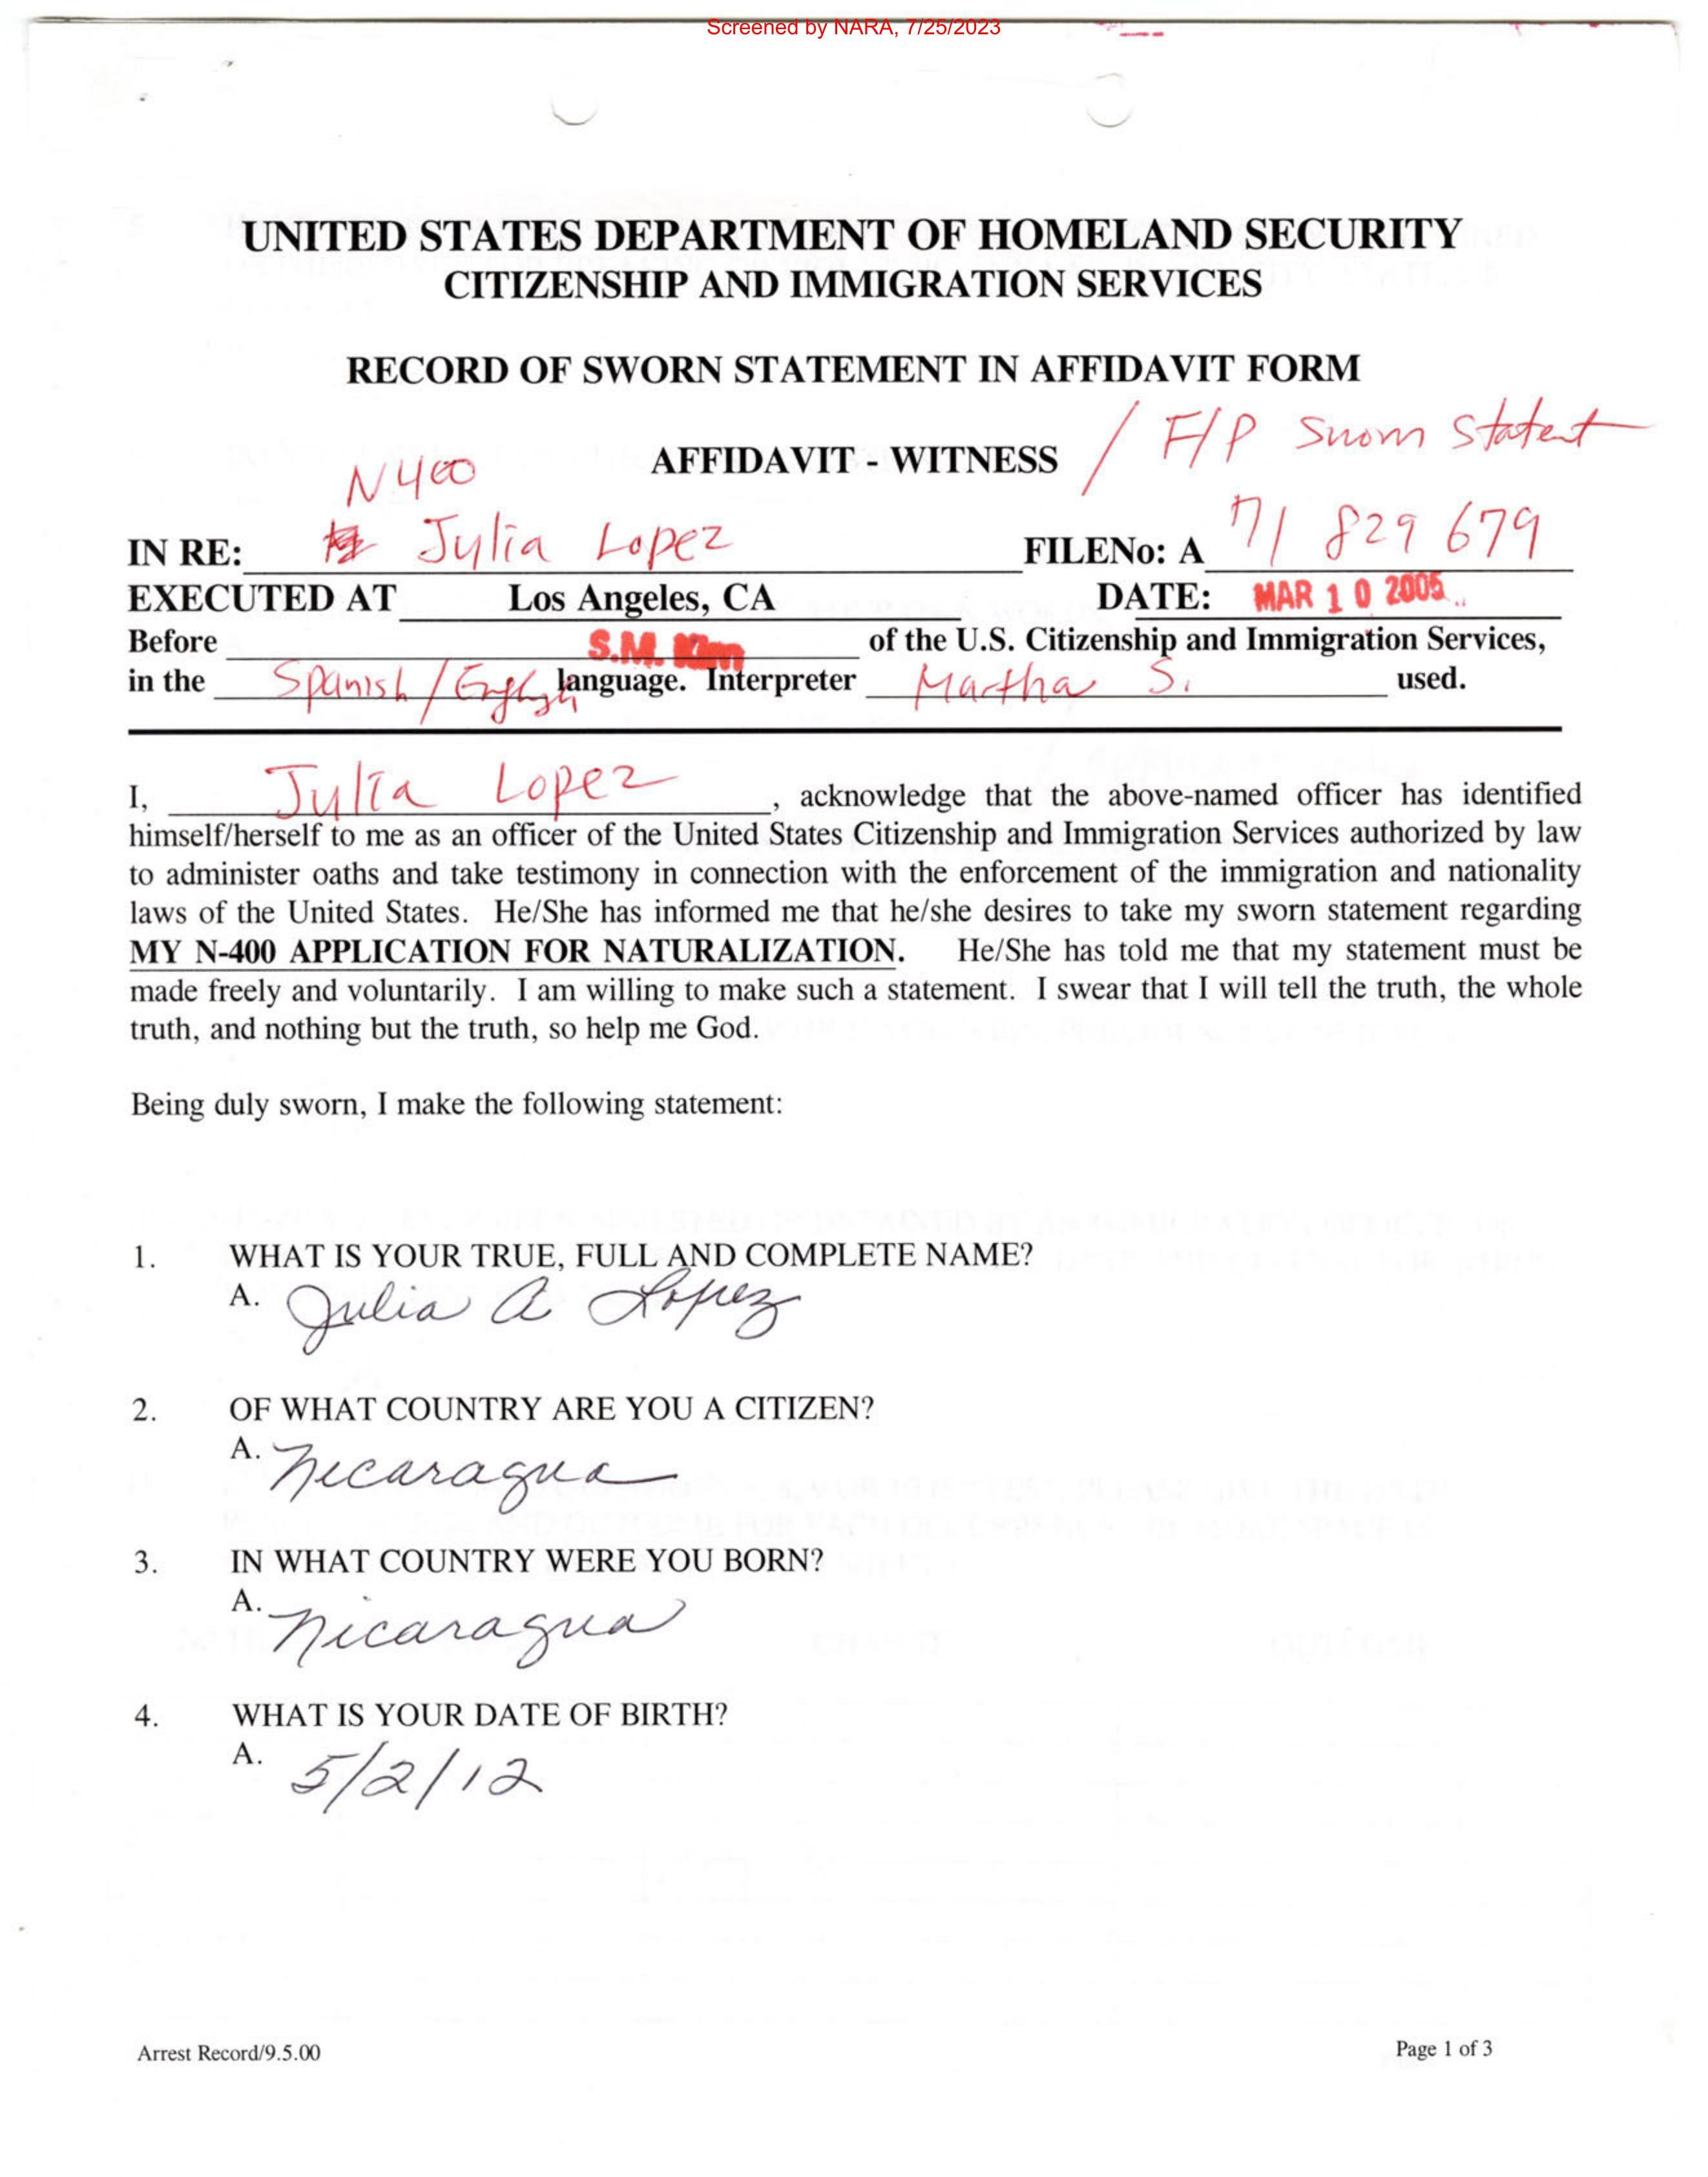 Screened by NARA, 7/25/2023
UNITED STATES DEPARTMENT OF HOMELAND SECURITY
CITIZENSHIP AND IMMIGRATION SERVICES
RECORD OF SWORN STATEMENT IN AFFIDAVIT FORM
AFFIDAVIT - WITNESS / F/P Sworn Statent
N400
IN RE: Julia Lopez FILENo: A 71 829 679
EXECUTED AT Los Angeles, CA DATE: MAR 10 2005
Before S.M. Kim of the U.S. Citizenship and Immigration Services,
in the Spanish / English language. Interpreter Martha S. used.
I, Julia Lopez, acknowledge that the above-named officer has identified
himself/herself to me as an officer of the United States Citizenship and Immigration Services authorized by law
to administer oaths and take testimony in connection with the enforcement of the immigration and nationality
laws of the United States. He/She has informed me that he/she desires to take my sworn statement regarding
MY N-400 APPLICATION FOR NATURALIZATION. He/She has told me that my statement must be
made freely and voluntarily. I am willing to make such a statement. I swear that I will tell the truth, the whole
truth, and nothing but the truth, so help me God.
Being duly sworn, I make the following statement:
1. WHAT IS YOUR TRUE, FULL AND COMPLETE NAME?
A. Julia A Lopez
2. OF WHAT COUNTRY ARE YOU A CITIZEN?
A. Nicaragua
3. IN WHAT COUNTRY WERE YOU BORN?
A. Nicaragua
4. WHAT IS YOUR DATE OF BIRTH?
A. 5/2/12
Arrest Record/9.5.00 Page 1 of 3